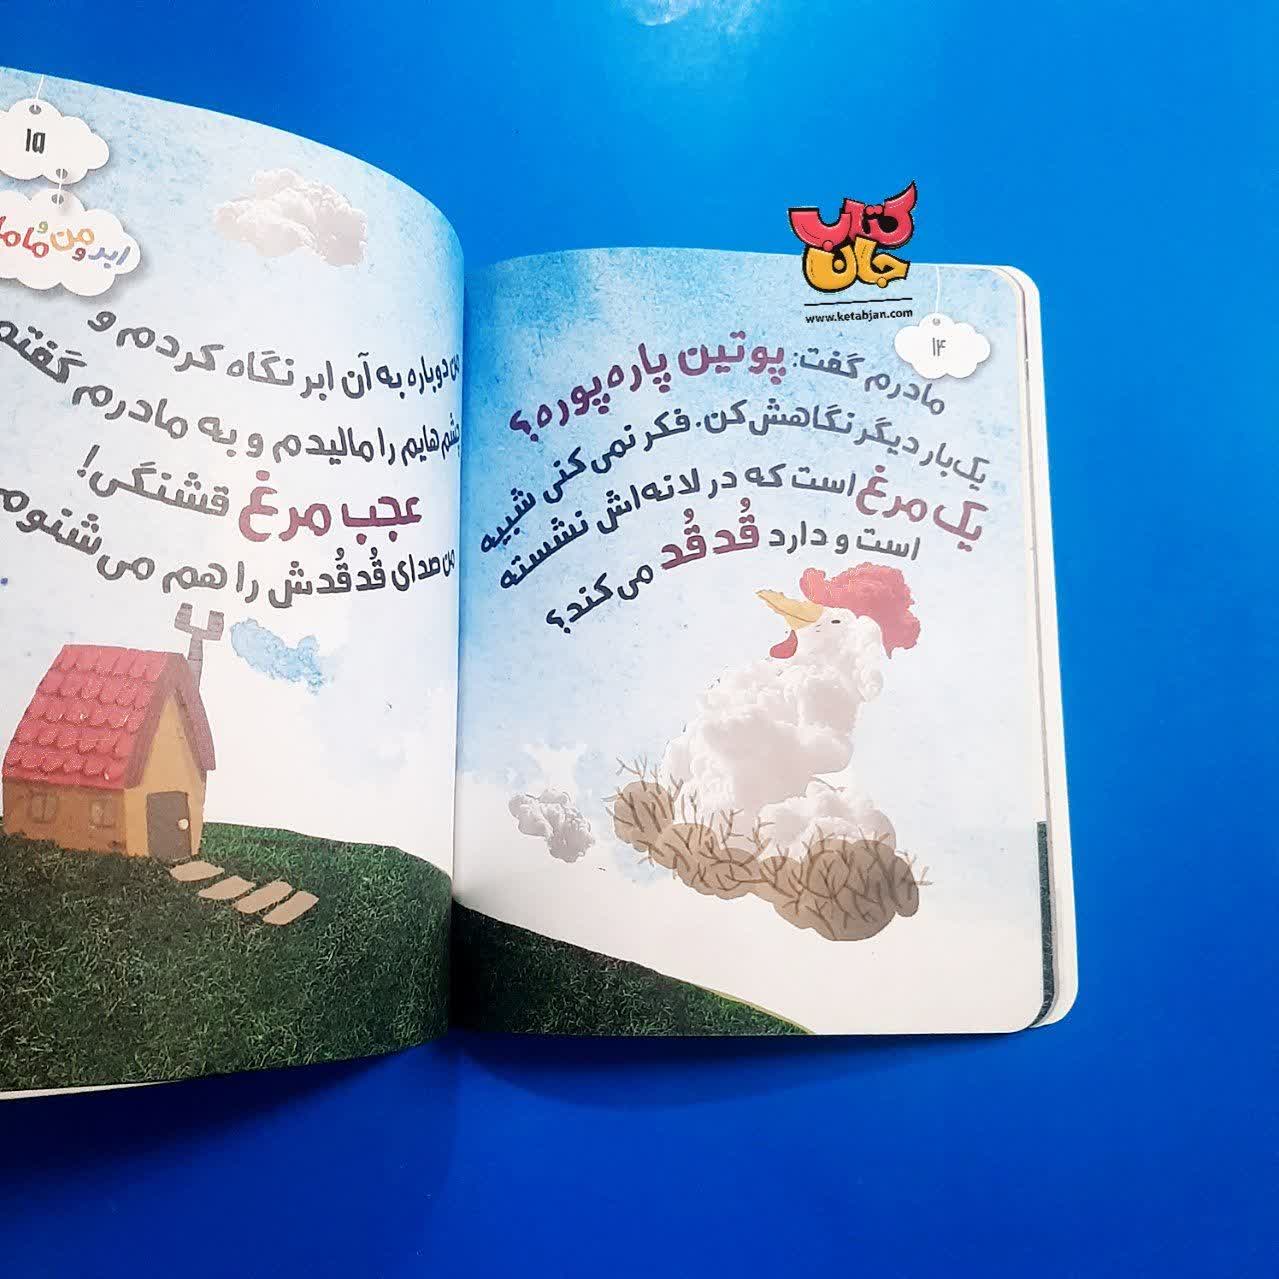 ۱۴
مادرم گفت: پوتین پاره‌پوره؟
یک‌بار دیگر نگاهش کن. فکر نمی‌کنی شبیه
یک مرغ است که در لانه‌اش نشسته
است و دارد قُدقُد می‌کند؟
۱۵
ابر و من و
دوباره به آن ابر نگاه کردم و
چشم‌هایم را مالیدم و به مادرم گفتم
عجب مرغ قشنگی!
من صدای قُدقُدش را هم می‌شنوم
کتاب
جان
www.ketabjan.com